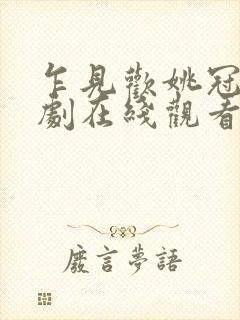 乍見歡姚冠
劇在綫觀看
廢言夢語